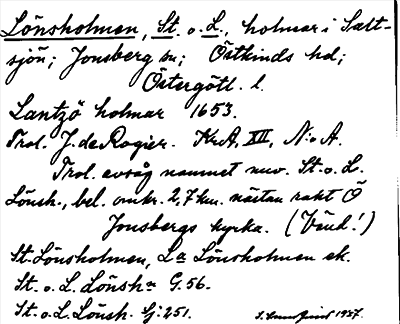 Lönsholmen, St. o. L., holmar i Salt-
sjön; Jonsberg sn; Östkinds hd;
Östergötl. l.
Lantzö holmar 1653.
Trol. J. de Rogier. KrA, XII, N:o A.
Trol. avsåg namnet nuv. St. o. L.
Lönsh., bel. omkr. 2,7 km. nästan rakt Ö
Jonsbergs kyrka. (Vänd!)
St. Lönsholmen, La Lönsholmen ek.
St. o. L. Lönshn G. 56.
St. o. L. Lönsh. Sj: 251.
1937.